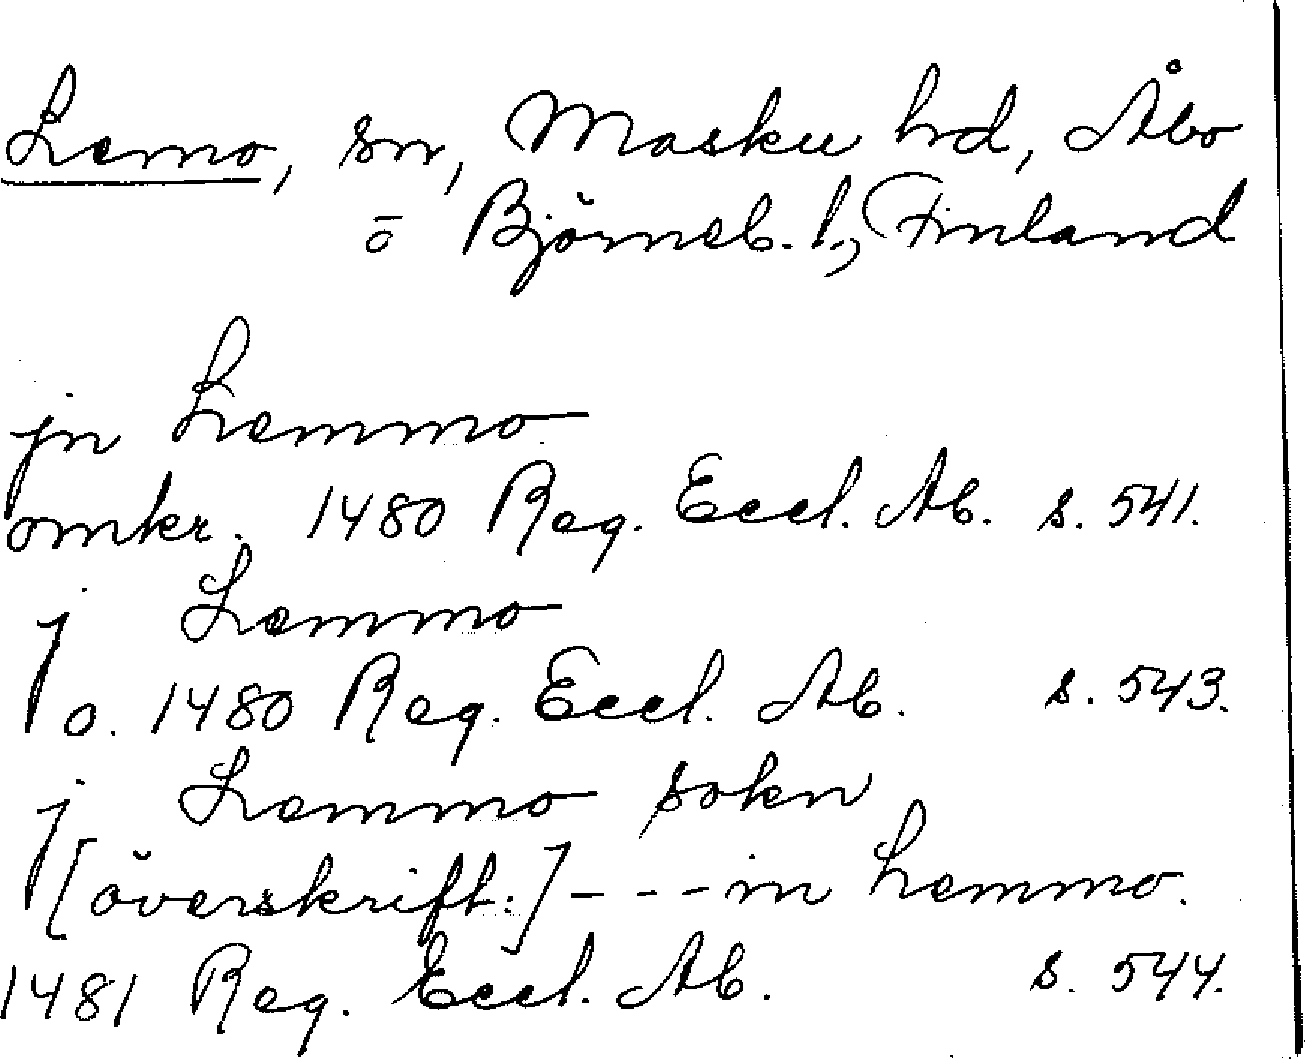 Lemo, sn, Masku hd, Åbo
o Björneb. l., Finland
jn Lemmo
omkr. 1480 Reg. Eccl. Ab. s. 541.
j Lemmo
o. 1480 Reg. Eccl. Ab. s. 543.
j Lemmo sokn
[överskrift:] - - - in Lemmo.
1481 Reg. Eccl. Ab. s. 544.